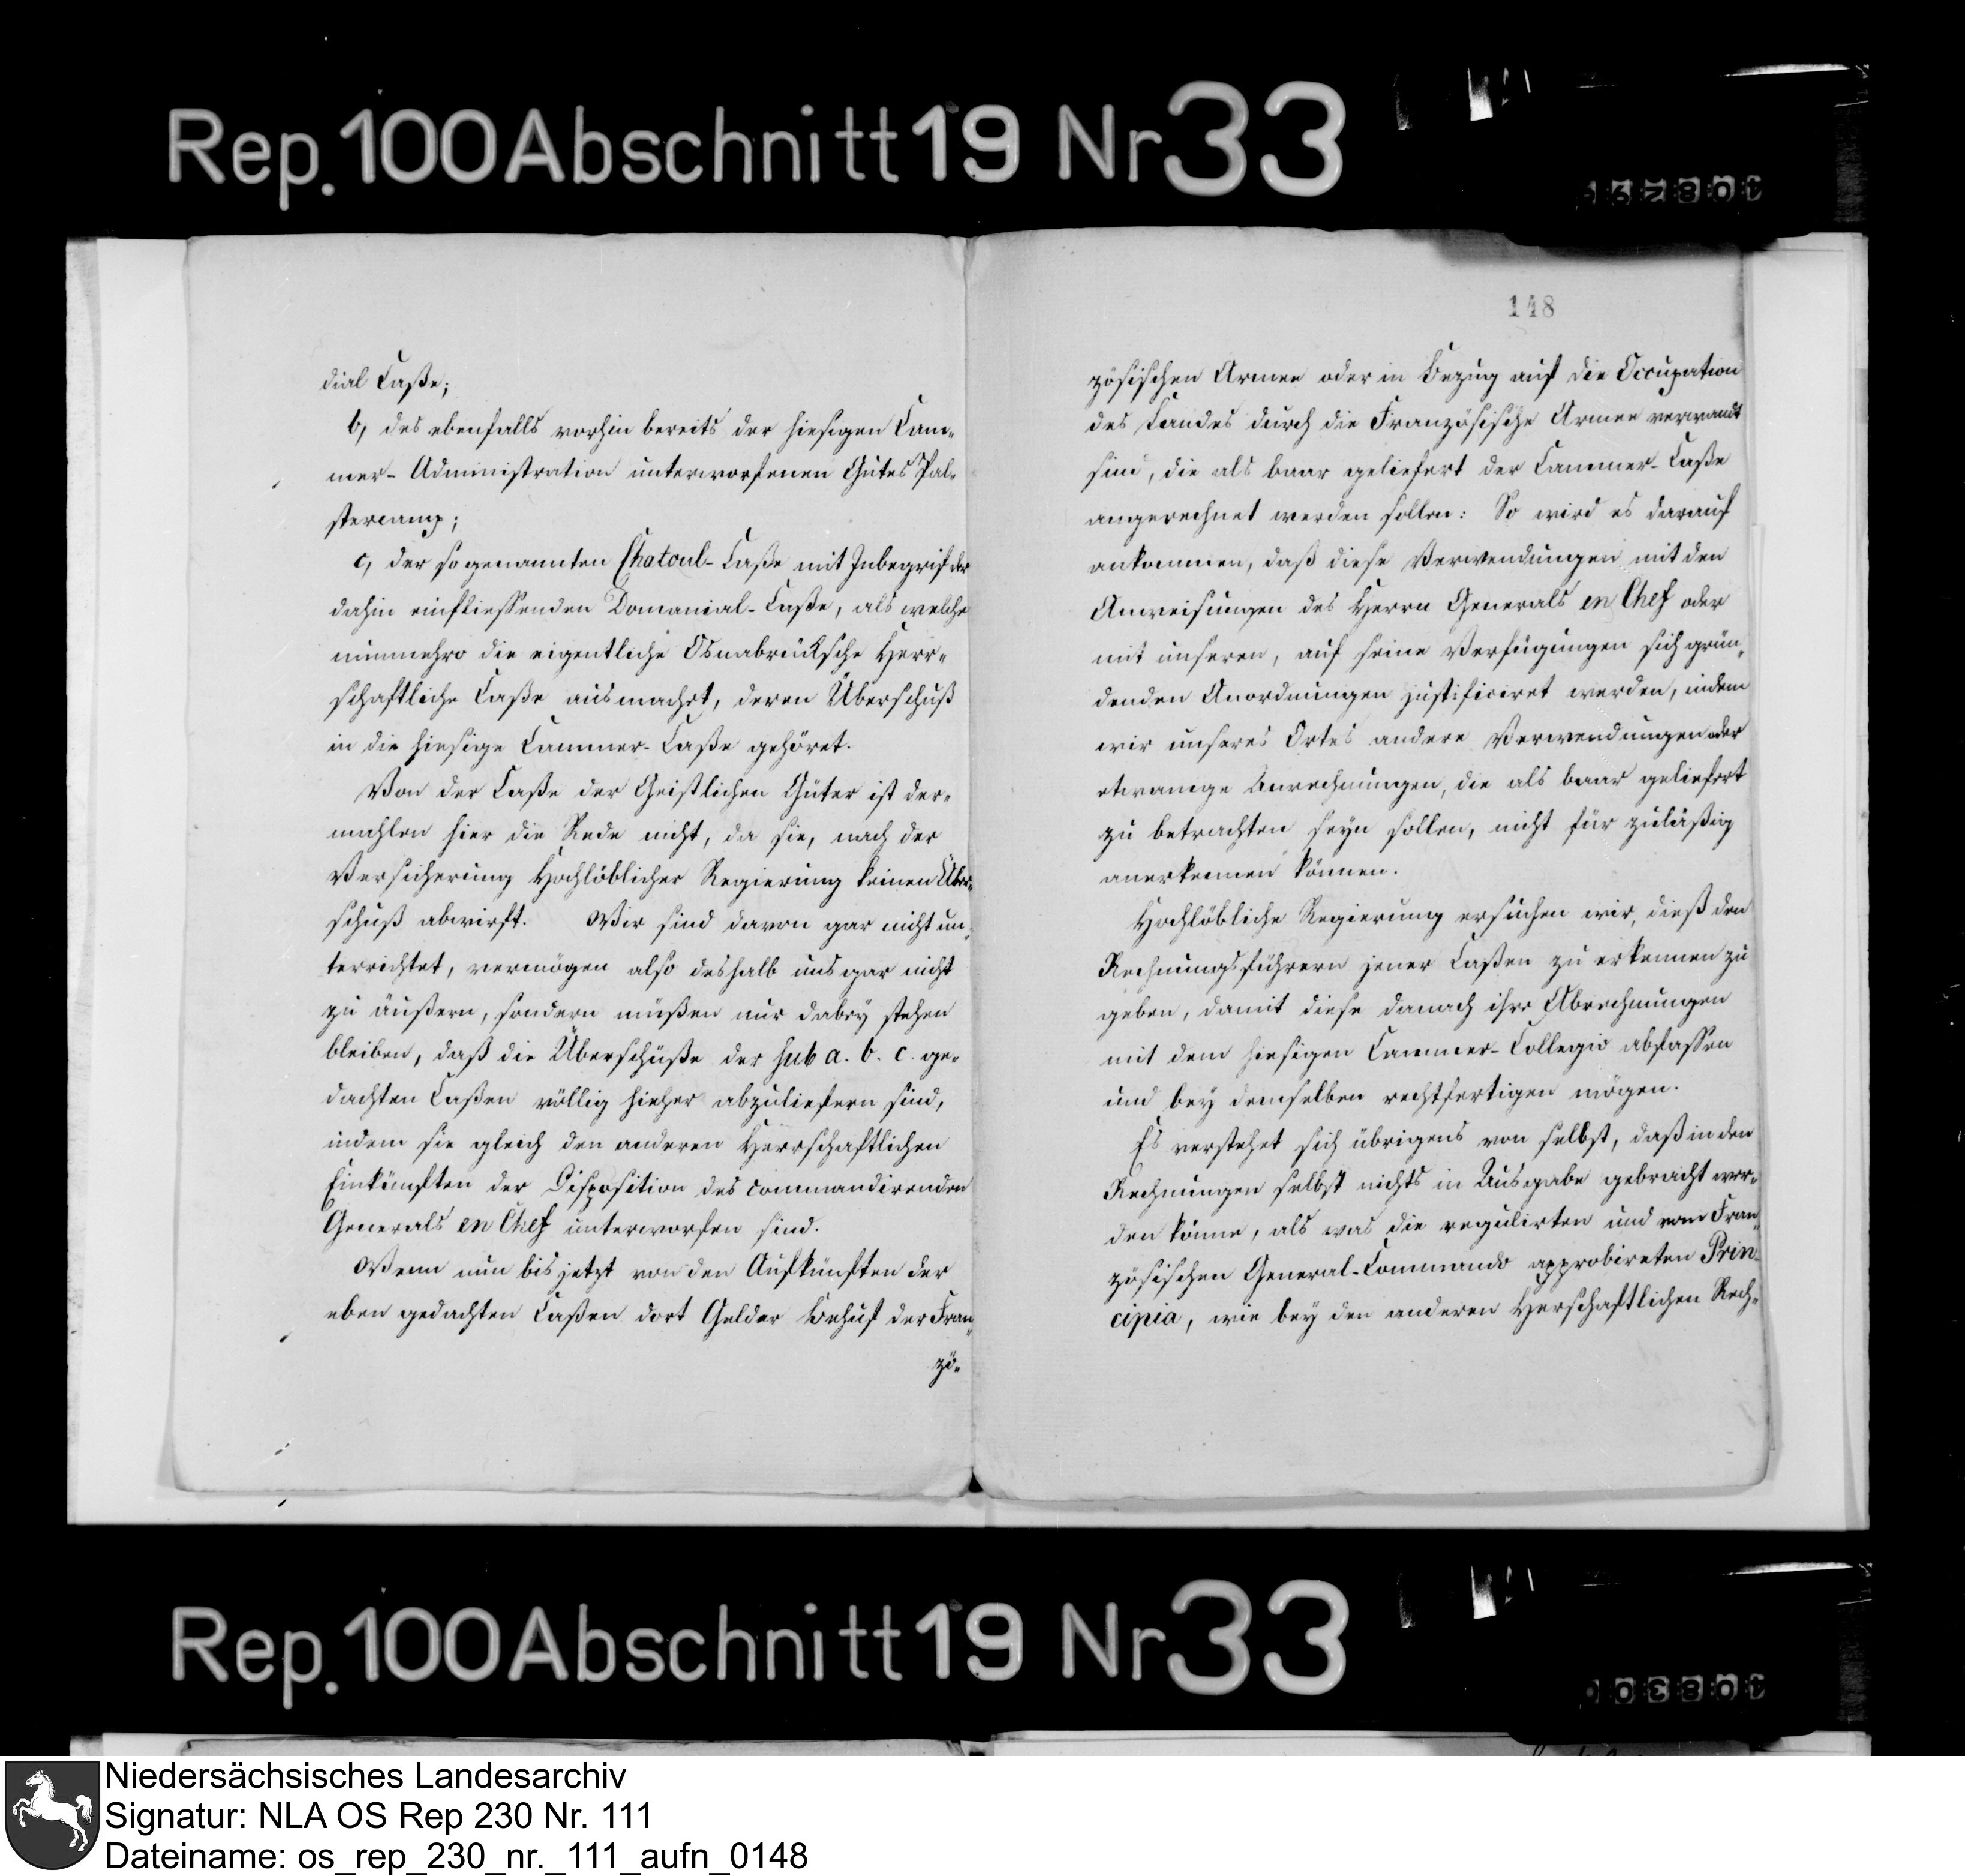 Rep. 100 Abschnitt 19 Nr 33
dial Caße;
b, des ebenfalls vorhin bereits der hiesigen Cam-
mer-Administration unterworfenen Gutes Pal-
stercamp;
c, der sogenannten Chatoul-Caße mit Inbegrif der
dahin einfliessenden Domanial-Caße, als welche
nunmehro die eigentliche Osnabrücksche Herr-
schaftliche Caße ausmachet, deren Überschuß
in die hiesige Cammer-Caße gehöret.
Von der Caße der Geistlichen Güter ist der-
mahlen hier die Rede nicht, da sie, nach der
Versicherung Hochlöblicher Regierung keinen Über-
schuß abwirft. Wir sind davon gar nicht un-
terrichtet, vermögen also deshalb uns gar nicht
zu äußern, sondern müßen nur dabey stehen
bleiben, daß die Überschüße der sub a. b. c. ge-
dachten Caßen völlig hieher abzuliefern sind,
indem sie gleich den anderen Herrschaftlichen
Einkünften der Disposition des commandirenden
Generals en Chef unterworfen sind.
Wenn nun bis jetzt von den Aufkünften der
eben gedachten Caßen dort Gelder Behuf der Fran-
zö-
148
zösischen Armee oder in Bezug auf die Occupation
des Landes durch die Französische Armee verwandt
sind, die als baar geliefert der Cammer-Caße
angerechnet werden sollen: So wird es darauf
ankommen, daß diese Verwendungen mit den
Anweisungen des Herrn Generals en Chef oder
mit unseren, auf seine Verfügungen sich grün-
denden Anordnungen justificiret werden, indem
wir unseres Ortes andere Verwendungen oder
etwanige Anrechnungen, die als baar geliefert
zu betrachten seyn sollen, nicht für zuläßig
anerkennen können.
Hochlöbliche Regierung ersuchen wir, dieß den
Rechnungsführern jener Caßen zu erkennen zu
geben, damit diese danach ihre Abrechnungen
mit dem hiesigen Cammer-Collegio abfassen
und bey demselben rechtfertigen mögen.
Es verstehet sich übrigens von selbst, daß in den
Rechnungen selbst nichts in Ausgabe gebracht wer-
den könne, als was die regulirten und vom Fran-
zösischen General-Commando approbireten Prin-
cipia, wie bey den anderen Herschaftlichen Rech-
Rep. 100 Abschnitt 19 Nr 33
Niedersächsisches Landesarchiv
Signatur: NLA OS Rep 230 Nr. 111
Dateiname: os_rep_230_nr._111_aufn_0148